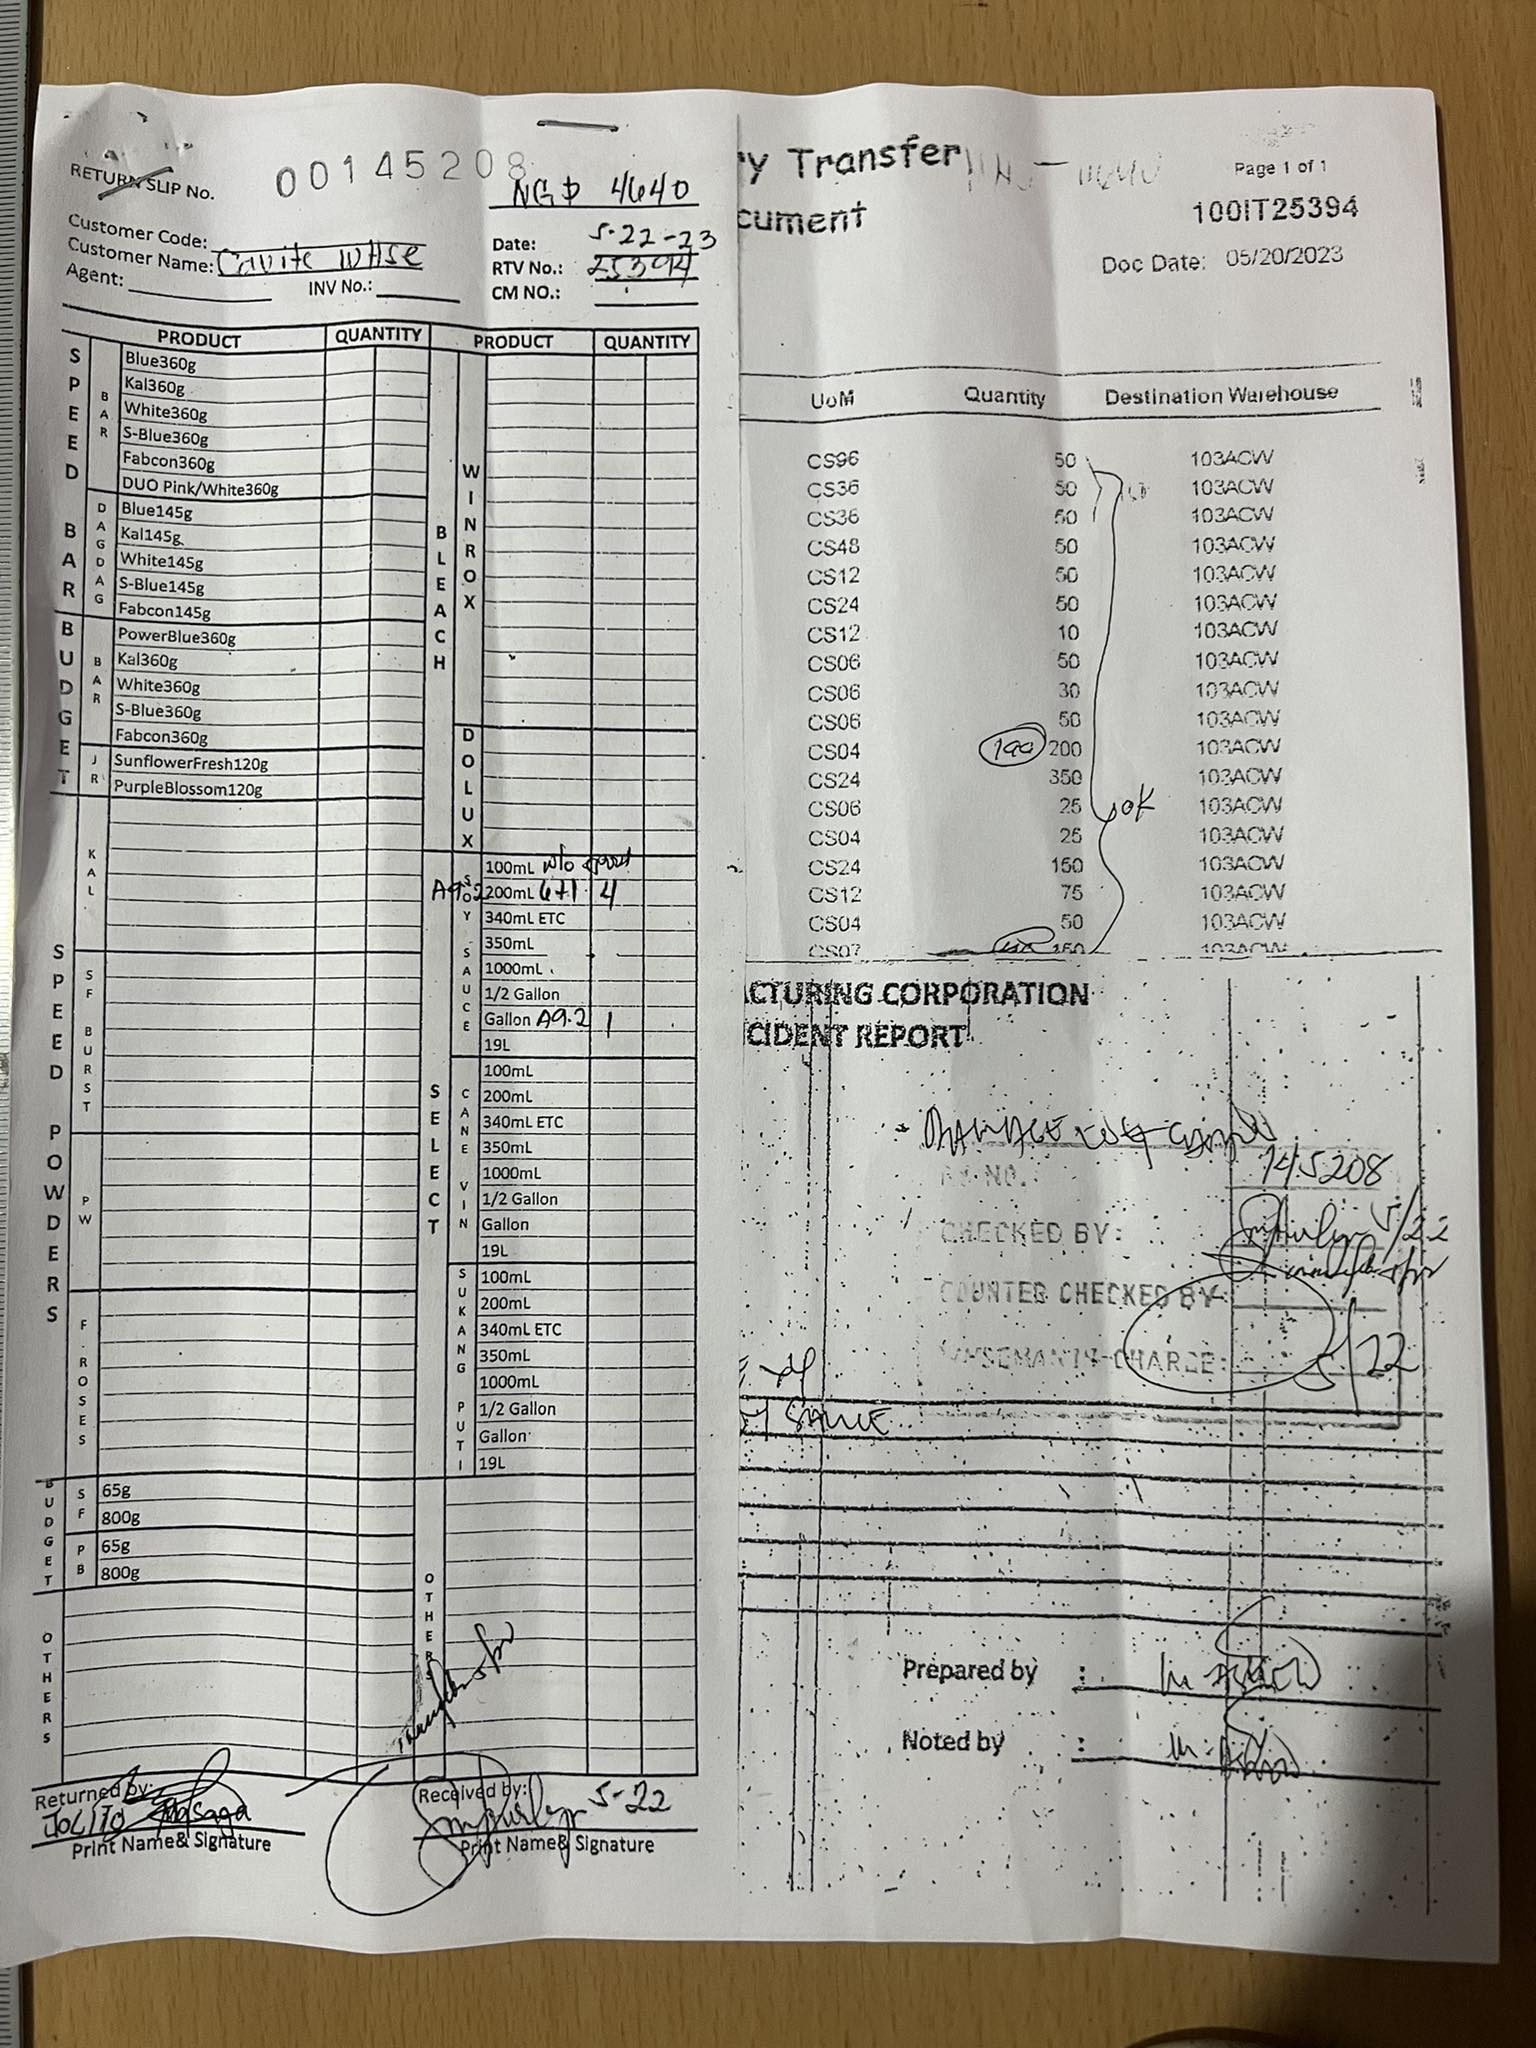 RETURN SLIP No. 00145208
NGD 4640
Customer Code:
Customer Name: Cavite WHSE
Agent:
INV No.:
Date: 5-22-23
RTV No.: 25394
CM NO.:
PRODUCT QUANTITY PRODUCT QUANTITY
SPEED BAR
BAR
Blue360g
Kal360g
White360g
S-Blue360g
Fabcon360g
DUO Pink/White360g
DAGDAG
Blue145g
Kal145g
White145g
S-Blue145g
Fabcon145g
BUDGET
BAR
PowerBlue360g
Kal360g
White360g
S-Blue360g
Fabcon360g
JR
SunflowerFresh120g
PurpleBlossom120g
SPEED POWDERS
KAL
SF BURST
PW
F.ROSES
BUDGET
SF
65g
800g
PB
65g
800g
OTHERS
BLEACH
WINROX
DOLUX
SELECT
SOY SAUCE
100mL w/o
A9.2 200mL 6+1 4
340mL ETC
350mL
1000mL
1/2 Gallon
Gallon A9.2 1
19L
CANE VIN
100mL
200mL
340mL ETC
350mL
1000mL
1/2 Gallon
Gallon
19L
SUKANG PUTI
100mL
200mL
340mL ETC
350mL
1000mL
1/2 Gallon
Gallon
19L
OTHERS
Returned by:
JOLITO
Print Name& Signature
Received by:
5-22
Print Name& Signature
ry Transfer
cument
Page 1 of 1
100IT25394
Doc Date: 05/20/2023
UoM Quantity Destination Warehouse
CS96 50 103ACW
CS36 50 103ACW
CS36 50 103ACW
CS48 50 103ACW
CS12 50 103ACW
CS24 50 103ACW
CS12 10 103ACW
CS06 50 103ACW
CS06 30 103ACW
CS06 50 103ACW
CS04 199 200 103ACW
CS24 350 103ACW
CS06 25 OK 103ACW
CS04 25 103ACW
CS24 150 103ACW
CS12 75 103ACW
CS04 50 103ACW
CS07 150 103ACW
ACTURING CORPORATION
CIDENT REPORT
DAMAGE
NO. 145208
CHECKED BY: 5/22
COUNTER CHECKED BY:
WHSEMAN IN-CHARGE: 5/22
SAUCE
Prepared by :
Noted by :